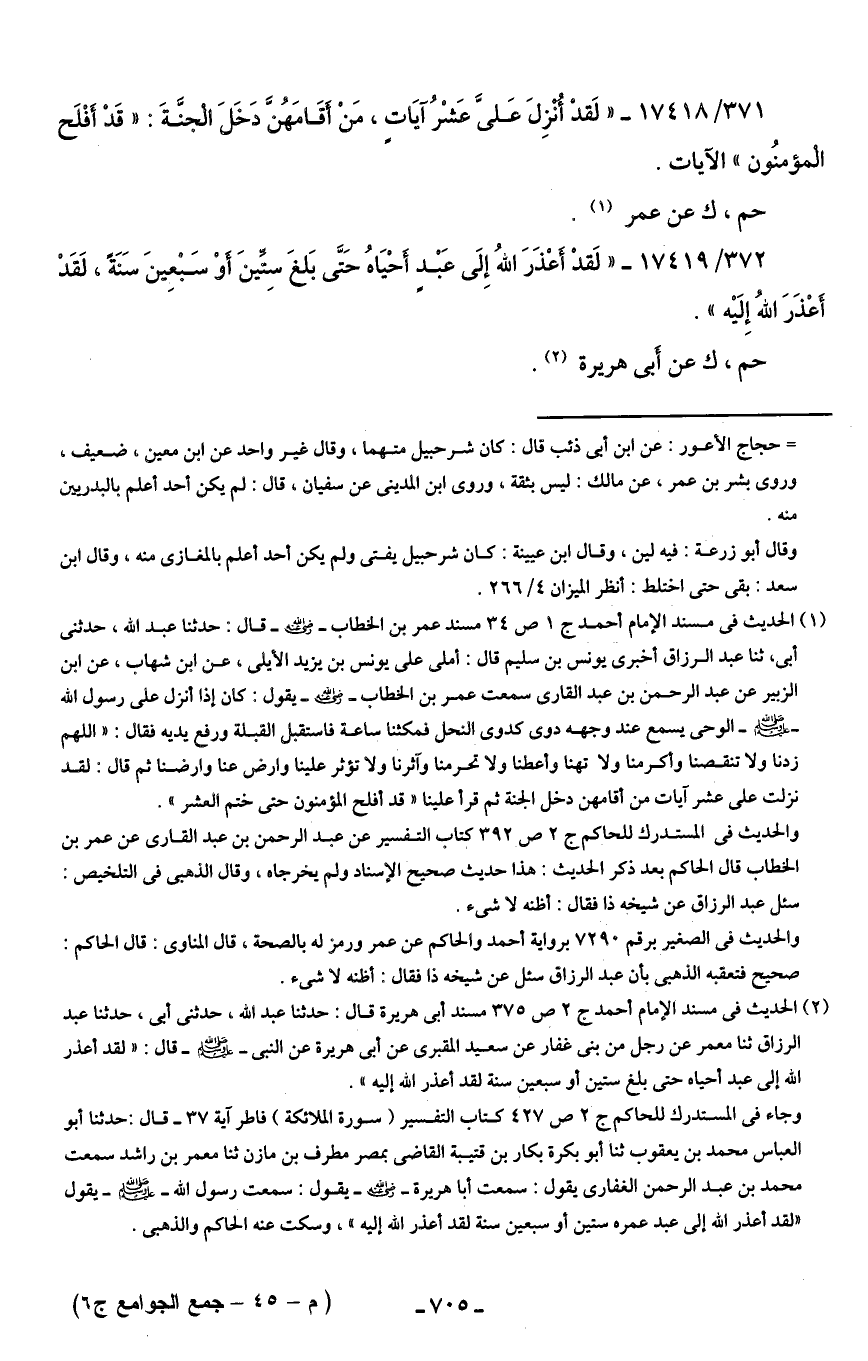 ١٧٤١٨/٣٧١ ـ « لَقدْ أُنْزِلَ عَـلىَّ عَشْرُ آيَاتٍ ، مَنْ أَقَـامَهُنَّ دَخَلَ الْجنَّـةَ : « قَدْ أَفْلَح
الْمؤمنُون » الآيات .
حم ، ك عن عمر (١) .
١٧٤١٩/٣٧٢ ـ « لَقدْ أَعْذَرَ اللهُ إِلَى عَبْـدٍ أَحْيَاهُ حَتَّى بَلغَ سِتِّينَ أَوْ سَـبْعِينَ سَنَةً ، لَقَدْ
أَعْذَرَ اللهُ إِلَيْهِ » .
حم ، ك عن أَبى هريرة (٢) .
= حجاج الأعـور : عن ابن أبى ذئب قال : كان شـرحبيل متـهما ، وقال غيـر واحد عن ابن معين ، ضـعيف ،
وروى بشر بن عمر ، عن مالك : ليس بثقة ، وروى ابن المدينى عن سفيان ، قال : لم يكن أحد أعلم بالبدريين
منه .
وقال أبو زرعـة : فيه لين ، وقـال ابن عيينة : كـان شرحبيل يفـتى ولم يكن أحد أعلم بالمغـازى منه ، وقال ابن
سعد : بقى حتى اختلط : أنظر الميزان ٤/ ٢٦٦ .
(١) الحديث فى مـسند الإمام أحمـد ج ١ ص ٣٤ مسند عمر بن الخطاب ـ رضي الله عنه ـ قـال : حدثنا عبـد الله ، حدثنى
أبى، ثنا عبد الـرزاق أخبرى يونس بن سليم قال : أملى على يونس بن يزيد الأيلى ، عـن ابن شهاب ، عن ابن
الزبير عن عبد الرحـمن بن عبد القارى سمعت عمـر بن الخطاب ـ رضي الله عنه ـ يقول : كان إذا أنزل على رسول الله
ـ صلى الله عليه وسلم ـ الوحى يسمع عند وجهـه دوى كدوى النحل فمكثنا ساعـة فاستقبل القبلـة ورفع يديه فقال : « اللهم
زدنا ولا تنقـصنا وأكـرمنا ولا تهنا وأعطنا ولا تحـرمنا وآثرنا ولا تؤثر علينا وارض عنا وارضـنا ثم قال : لقـد
نزلت على عشر آيات من أقامهن دخل الجنة ثم قرأ علينا « قد أفلح المؤمنون حتى ختم العشر » .
والحديث فى المستـدرك للحاكم ج ٢ ص ٣٩٢ كتاب التـفسير عن عبـد الرحمن بن عبد القـارى عن عمر بن
الخطاب قال الحاكم بعد ذكر الحديث : هذا حديث صحيح الإسناد ولم يخرجاه ، وقال الذهبى فى التلخيص :
سئل عبد الرزاق عن شيخه ذا فقال : أظنه لا شىء .
والحديث فى الصغير برقم ٧٢٩٠ برواية أحمد والحاكم عن عمر ورمز له بالصحة ، قال المناوى : قال الحاكم :
صحيح فتعقبه الذهبى بأن عبد الرزاق سئل عن شيخه ذا فقال : أظنه لا شىء .
(٢) الحديث فى مسند الإمام أحمد ج ٢ ص ٣٧٥ مسند أبى هريرة قـال : حدثنا عبد الله ، حدثنى أبى ، حدثنا عبد
الرزاق ثنا معمر عن رجل من بنى غفار عن سعيـد المقبرى عن أبى هريرة عن النبى ـ صلى الله عليه وسلم ـ قال : « لقد أعذر
الله إلى عبد أحياه حتى بلغ ستين أو سبعين سنة لقد أعذر الله إليه » .
وجاء فى المستدرك للحاكم ج ٢ ص ٤٢٧ كـتاب التفسير ( سـورة الملائكة ) فاطر آية ٣٧ ـ قـال :حدثنا أبو
العباس محمد بن يعقوب ثنا أبو بكرة بكار بن قتيبة القاضى بمصر مطرف بن مازن ثنا معمر بن راشد سمعت
محمد بن عبـد الرحمن الغفارى يقول : سمعت أبا هريرة ـ رضي الله عنه ـ يقـول : سمعت رسول الله ـ صلى الله عليه وسلم ـ يقول
«لقد أعذر الله إلى عبد عمره ستين أو سبعين سنة لقد أعذر الله إليه » ، وسكت عنه الحاكم والذهبى .
ـ ٧٠٥ ـ
( م – ٤٥ – جمع الجوامع ج٦)